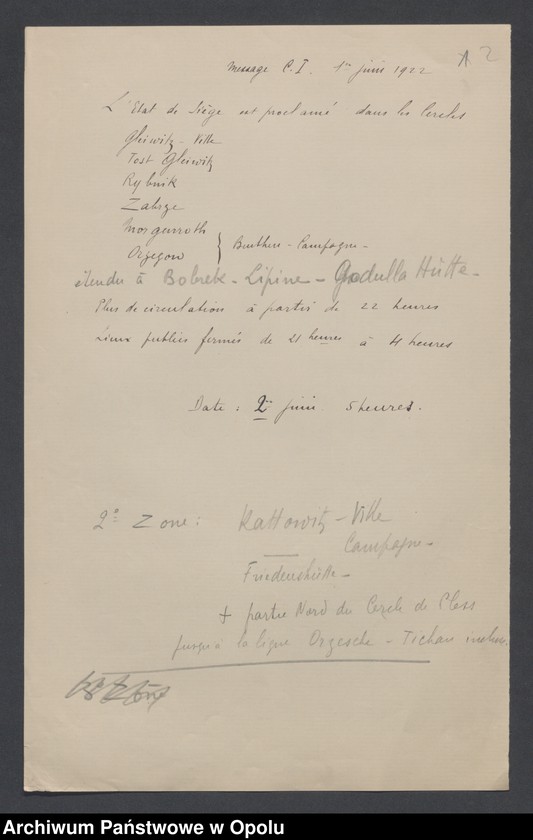 Message C.I. 1er juin 1922
2
L'Etat de siège est proclamé dans les Cercles
Gleiwitz - Ville
Tost Gleiwitz
Rybnik
Zabrze
Morgenroth
Orzegow } Beuthen - Campagne -
étendu à Bobrek - Lipine - Godulla Hütte -
Plus de circulation à partir de 22 heures
Lieux publics fermés de 21 heures à 4 heures
Date : 2 juin 5 heures.
2e Zone : Kattowitz - Ville
Campagne -
Friedenshütte -
+ partie Nord du Cercle de Pless
jusqu'à la ligne Orzesche - Tichau inclus.
Archiwum Państwowe w Opolu